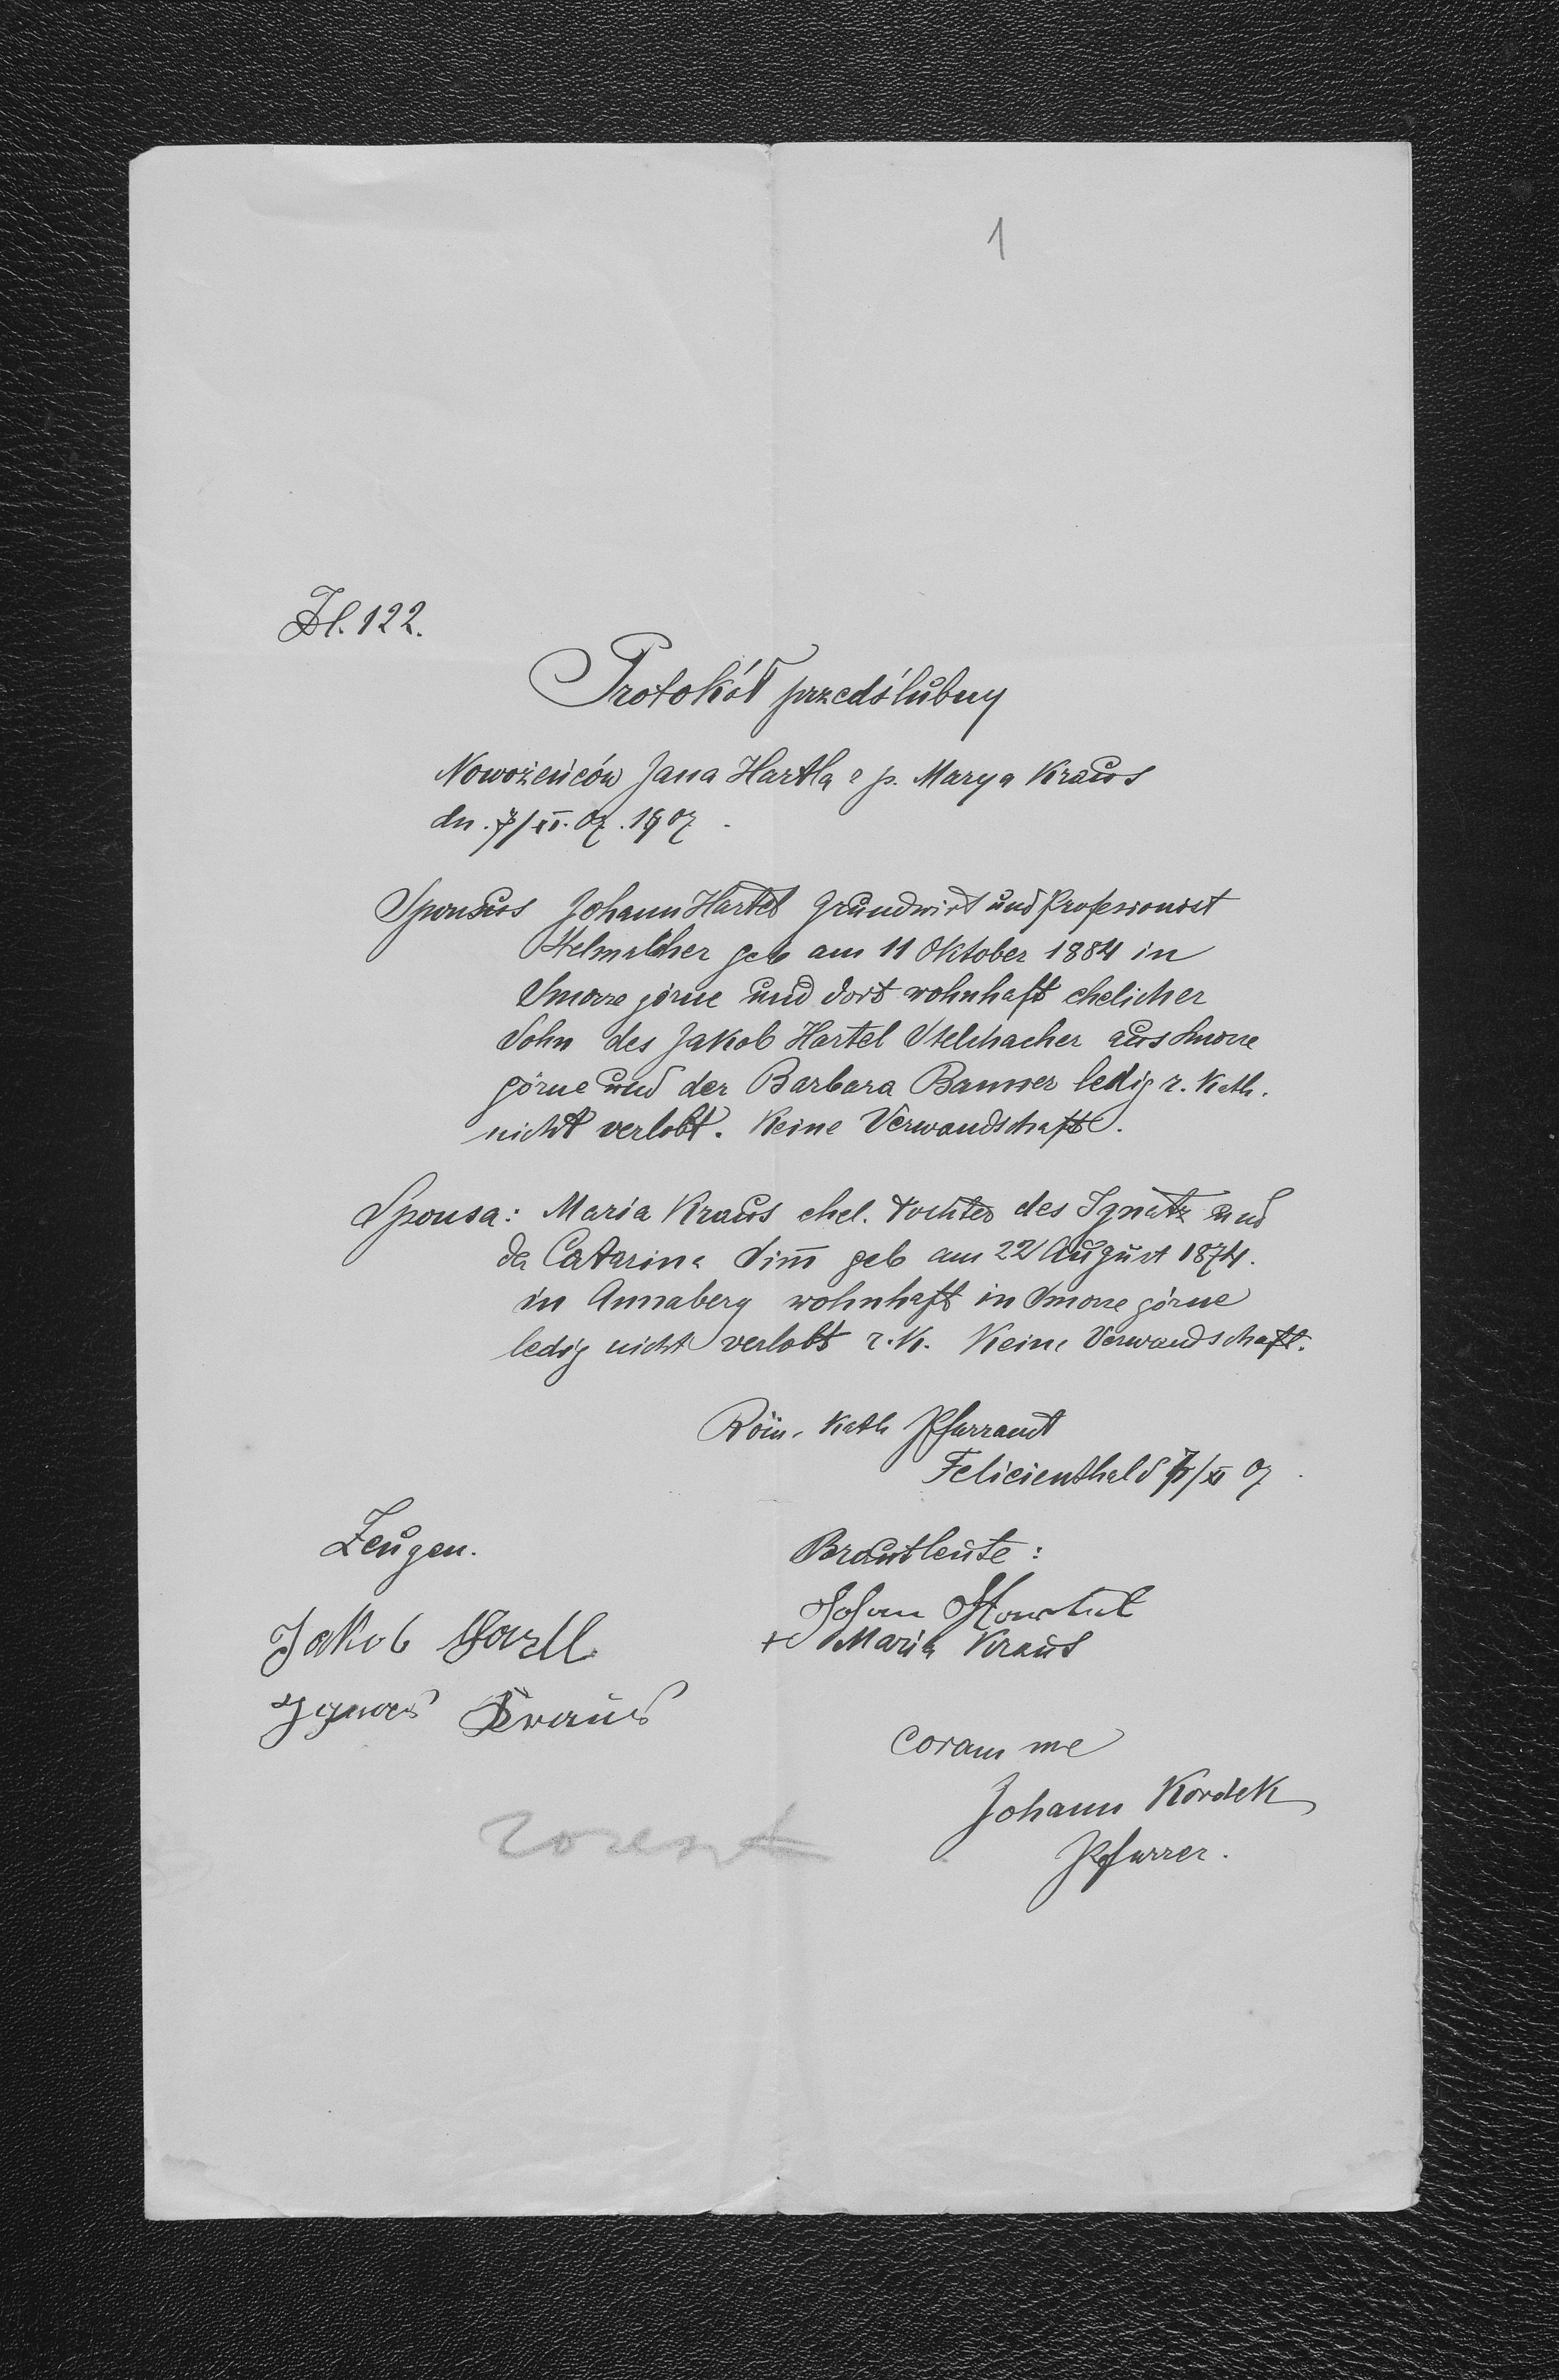 1
Zl. 122.
Protokół przedślubny
Nowożeńców Jana Hartla z p. Marya Kraus
dn. 7/XI. 07. 1907
Sponsus Johann Hartel Grundwirt und Profesionist
geb am 11 Oktober 1884 in
Smorze górne und dort wohnhaft ehelicher
Sohn des Jakob Hartel aus Smorze
górne und der Barbara ledig r. Kath.
nicht verlobt. Keine Verwandschaft.
Sponsa: Maria Kraus ehel. Tochter des Ignatz und
der Catarina geb am 22 August 1874.
in Annaberg wohnhaft in Smorze górne
ledig nicht verlobt r. K. Keine Verwandschaft.
Röm. Kath Pfarramt
Felicienthal d 7/XI 07
Zeugen.
Brautleute:
Jakob Hartl
Johan
+ Maria Kraus
Kraus
coram me
Johann Kordek
Pfarrer.